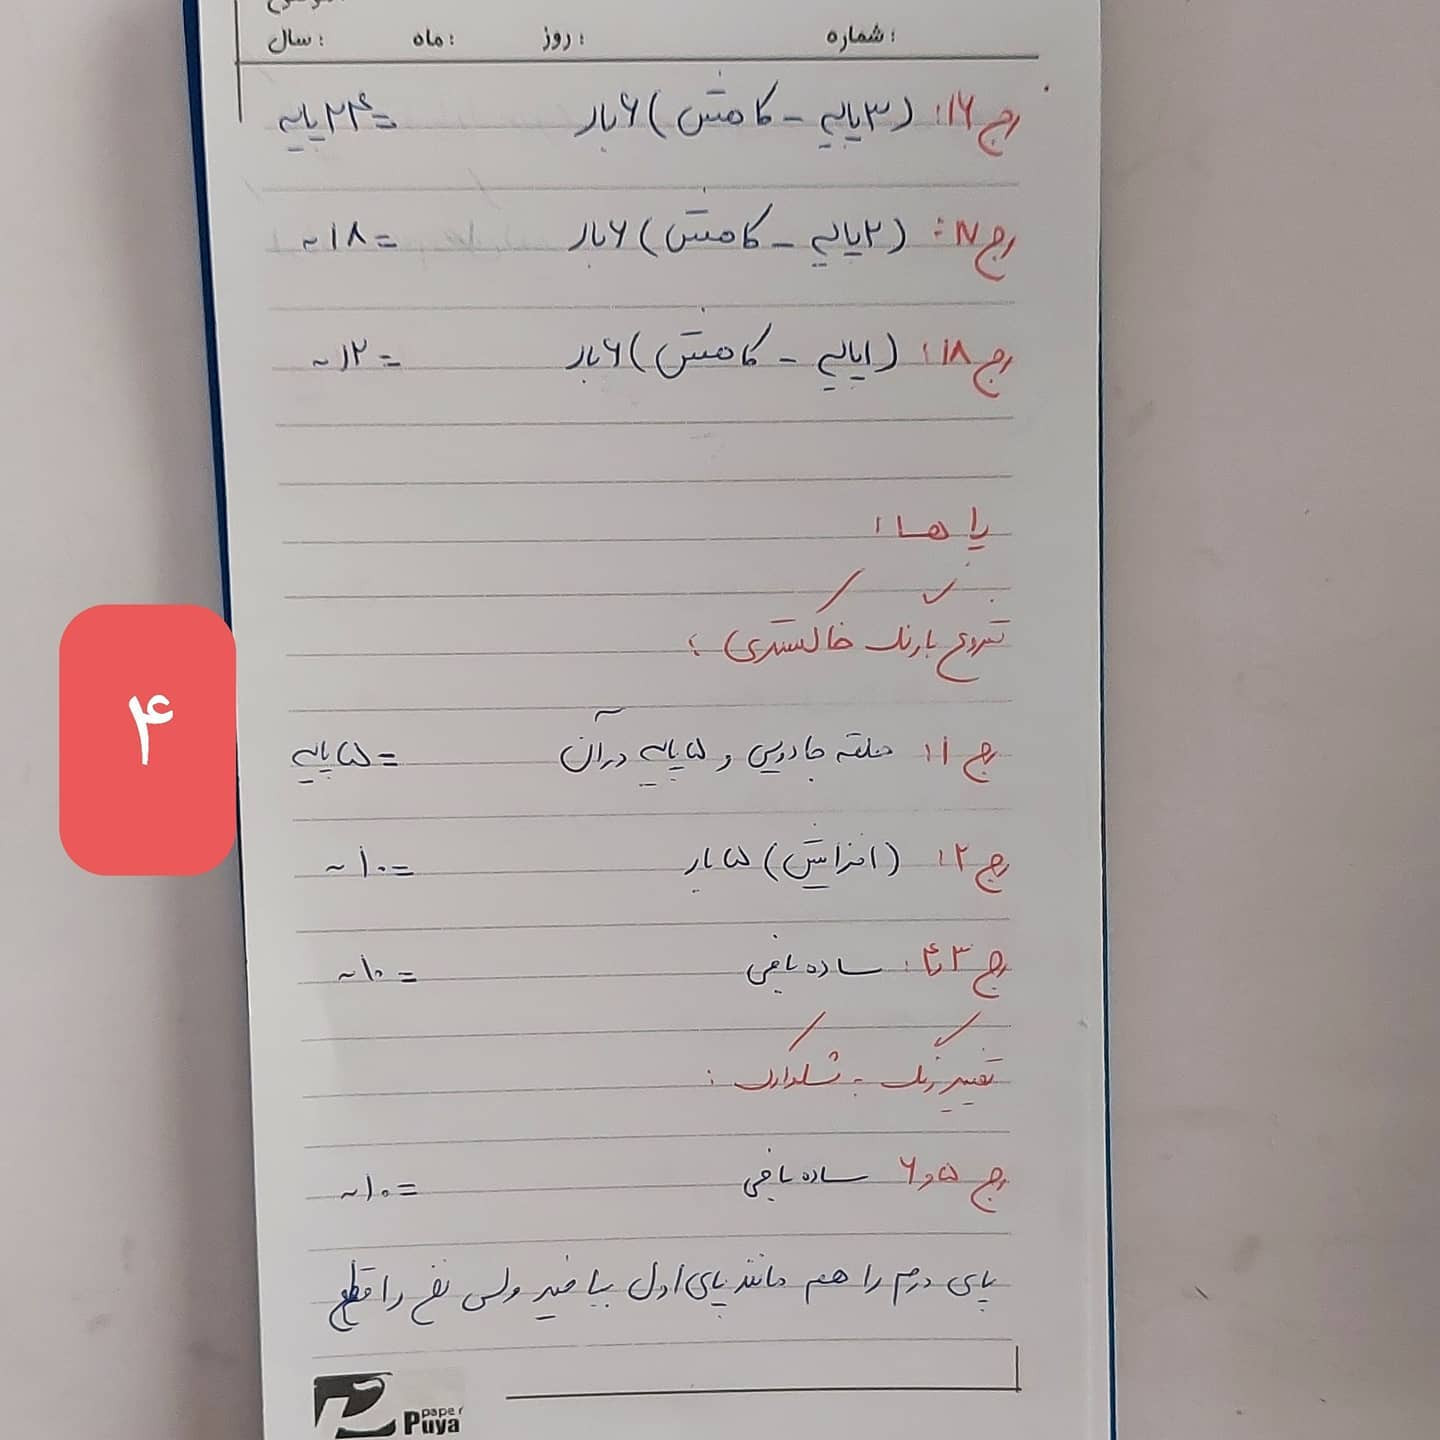 شماره: روز: ماه: سال:
رج ۱۶: (۳پایه - کاهش) ۶بار =۲۴پایه
رج ۱۷: (۲پایه - کاهش) ۶بار =۱۸~
رج ۱۸: (۱پایه - کاهش) ۶بار =۱۲~
پا ها:
شروع با رنگ خاکستری:
رج ۱: حلقه جادویی و ۵پایه در آن =۵پایه
رج ۲: (افزایش) ۵بار =۱۰~
رج ۳و۴: ساده بافی =۱۰~
تغییر رنگ - شکلاتی:
رج ۵و۶ ساده بافی =۱۰~
پای دوم را هم مانند پای اول ببافید ولی نخ را قطع
۴
Puya paper